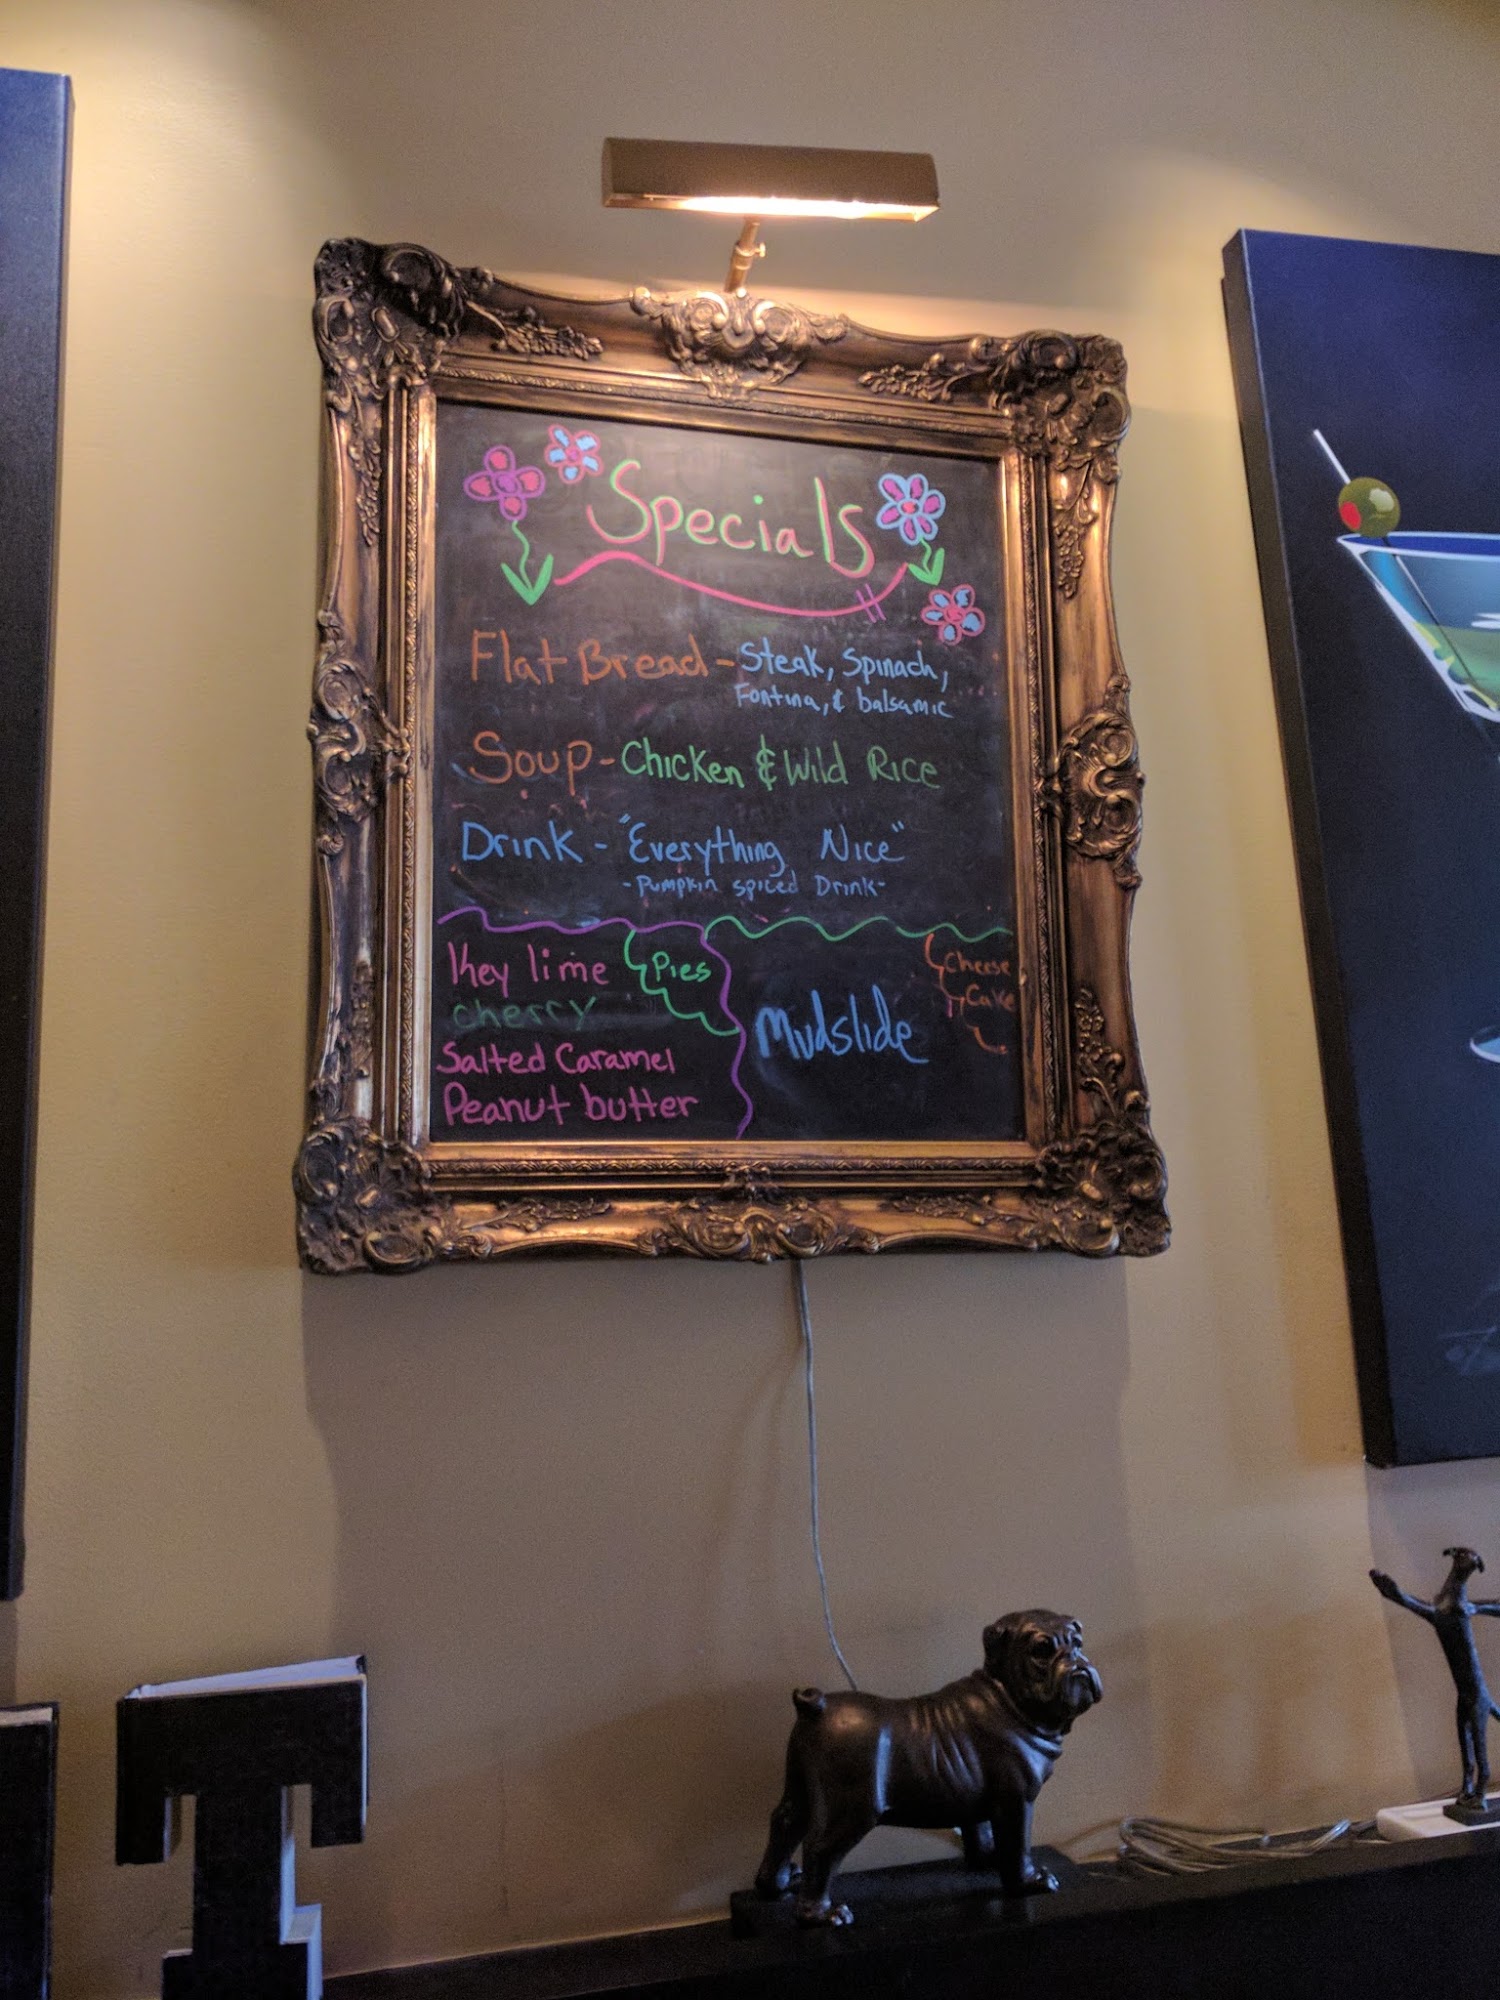 Specials
Flat Bread - Steak, Spinach,
Fontina, & balsamic
Soup - Chicken & Wild Rice
Drink - "Everything Nice"
- Pumpkin spiced Drink -
Pies
Key lime
cherry
Salted Caramel
Peanut butter
Cheese
Cake
Mudslide
T